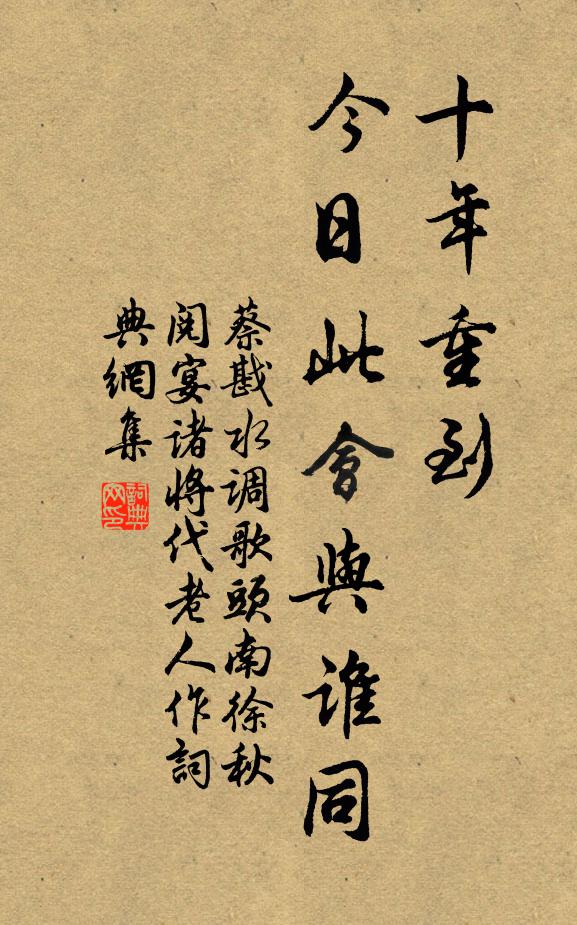 十年重到
今日此會與誰同
蔡戡水调歌頭南徐秋
閱宴诸將代老人作詞
典網集
詞典網印